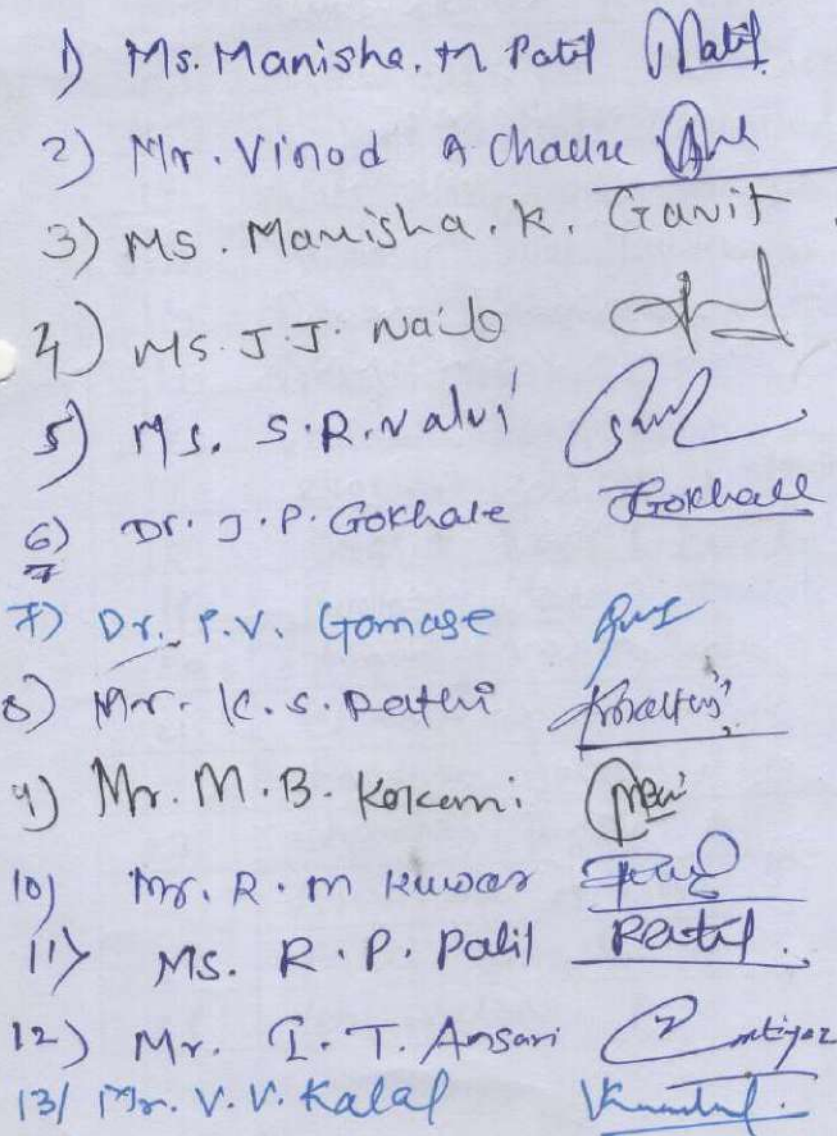 1) Ms. Manisha. M Patil Patil
2) Mr. Vinod A Chaure
3) MS. Manisha. K. Gavit
4) MS. J.J. Naik
5) Ms. S.R. Valvi
6) Dr. J.P. Gokhale JGokhale
7) Dr. P.V. Gomase
8) Mr. K.S. Rathi
9) Mr. M.B. Kokani
10) Mr. R.M Kuwar
11) Ms. R.P. Patil RPatil.
12) Mr. I.T. Ansari Imtiyaz
13/ Mr. V.V. Kalal